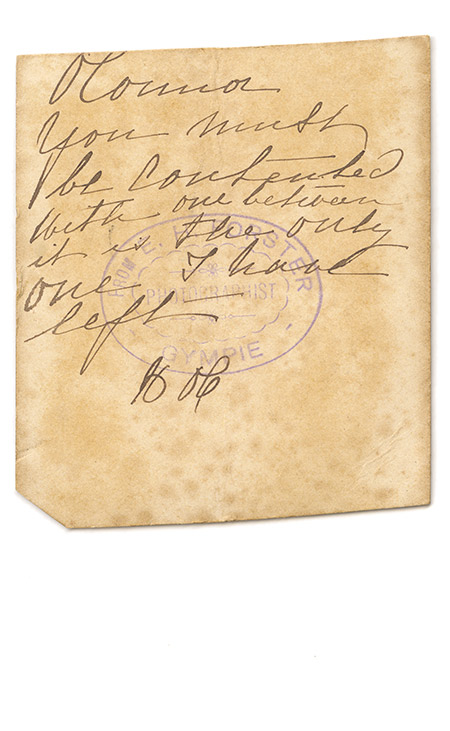 O'Connor
You must
be contented
with one between
it is the only
one I have
left
FROM E. H. FORSTER
PHOTOGRAPHIST
GYMPIE